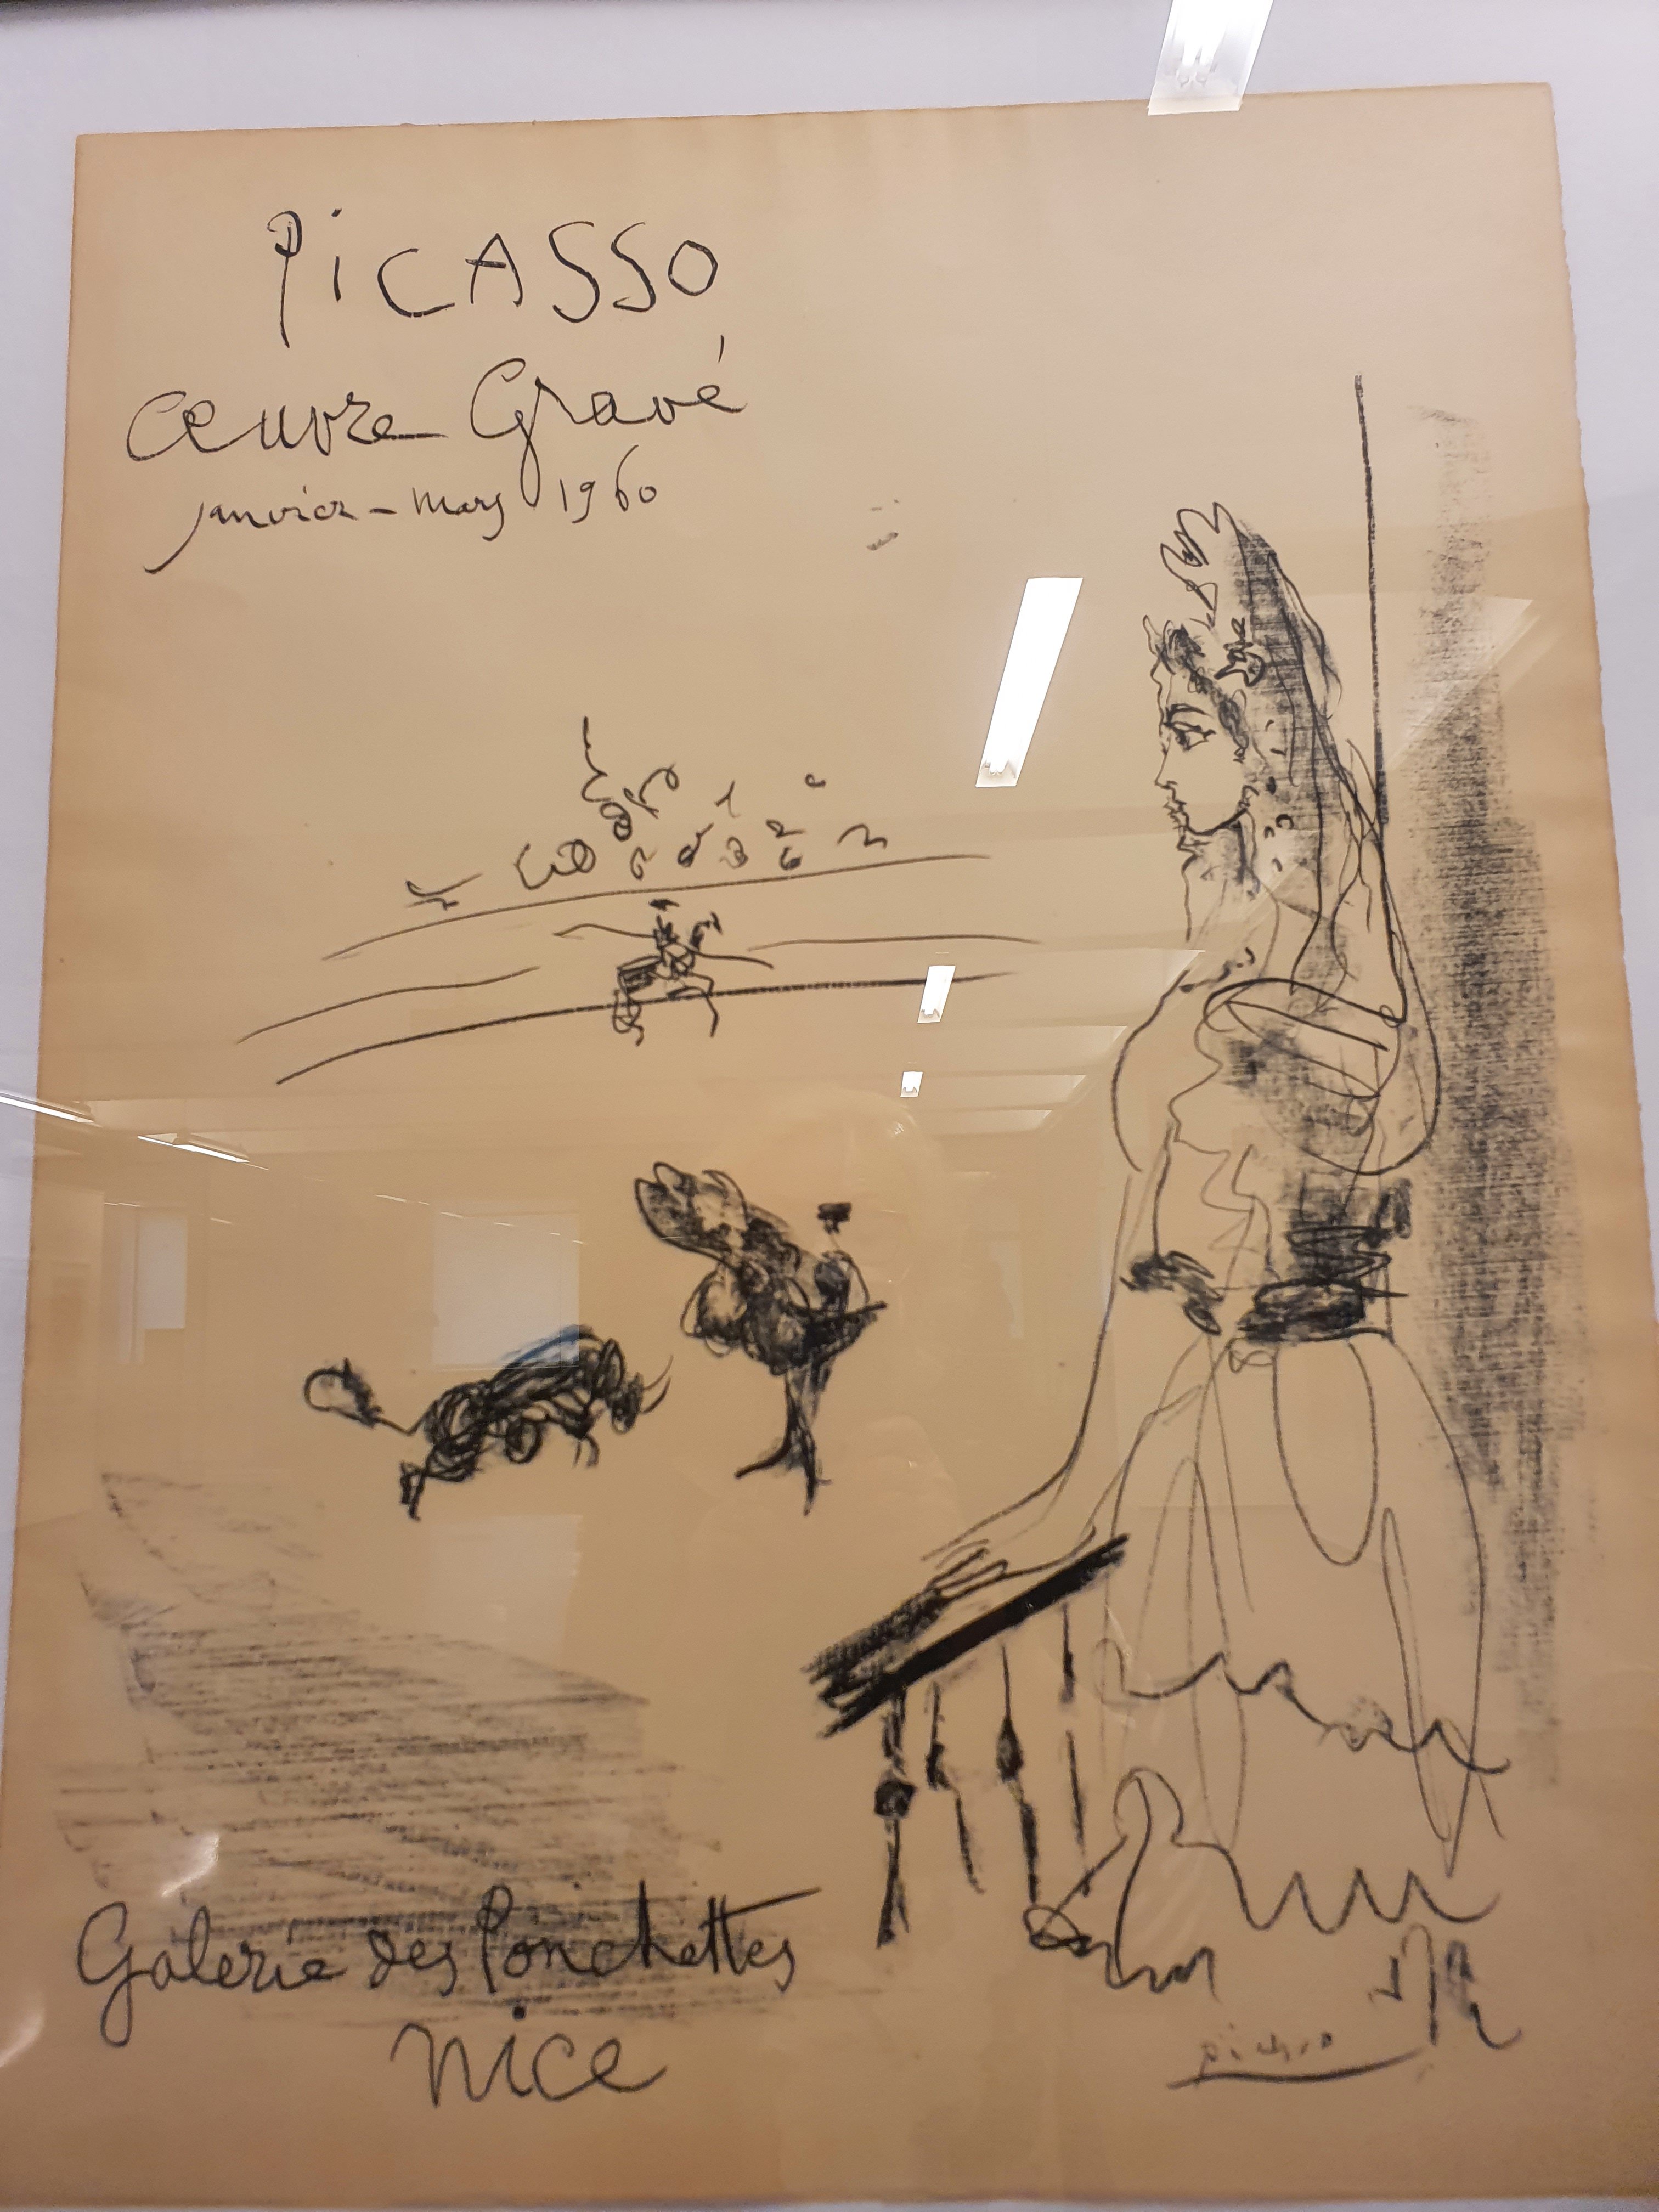 PiCASSO
Œuvre Gravé
janvier - mars 1960
Galerie des Ponchettes
Nice
Picasso